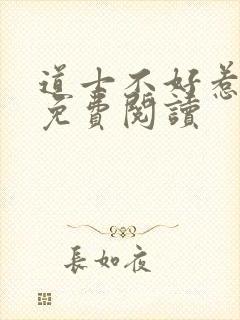 道士不好惹
免費閱讀
長如夜